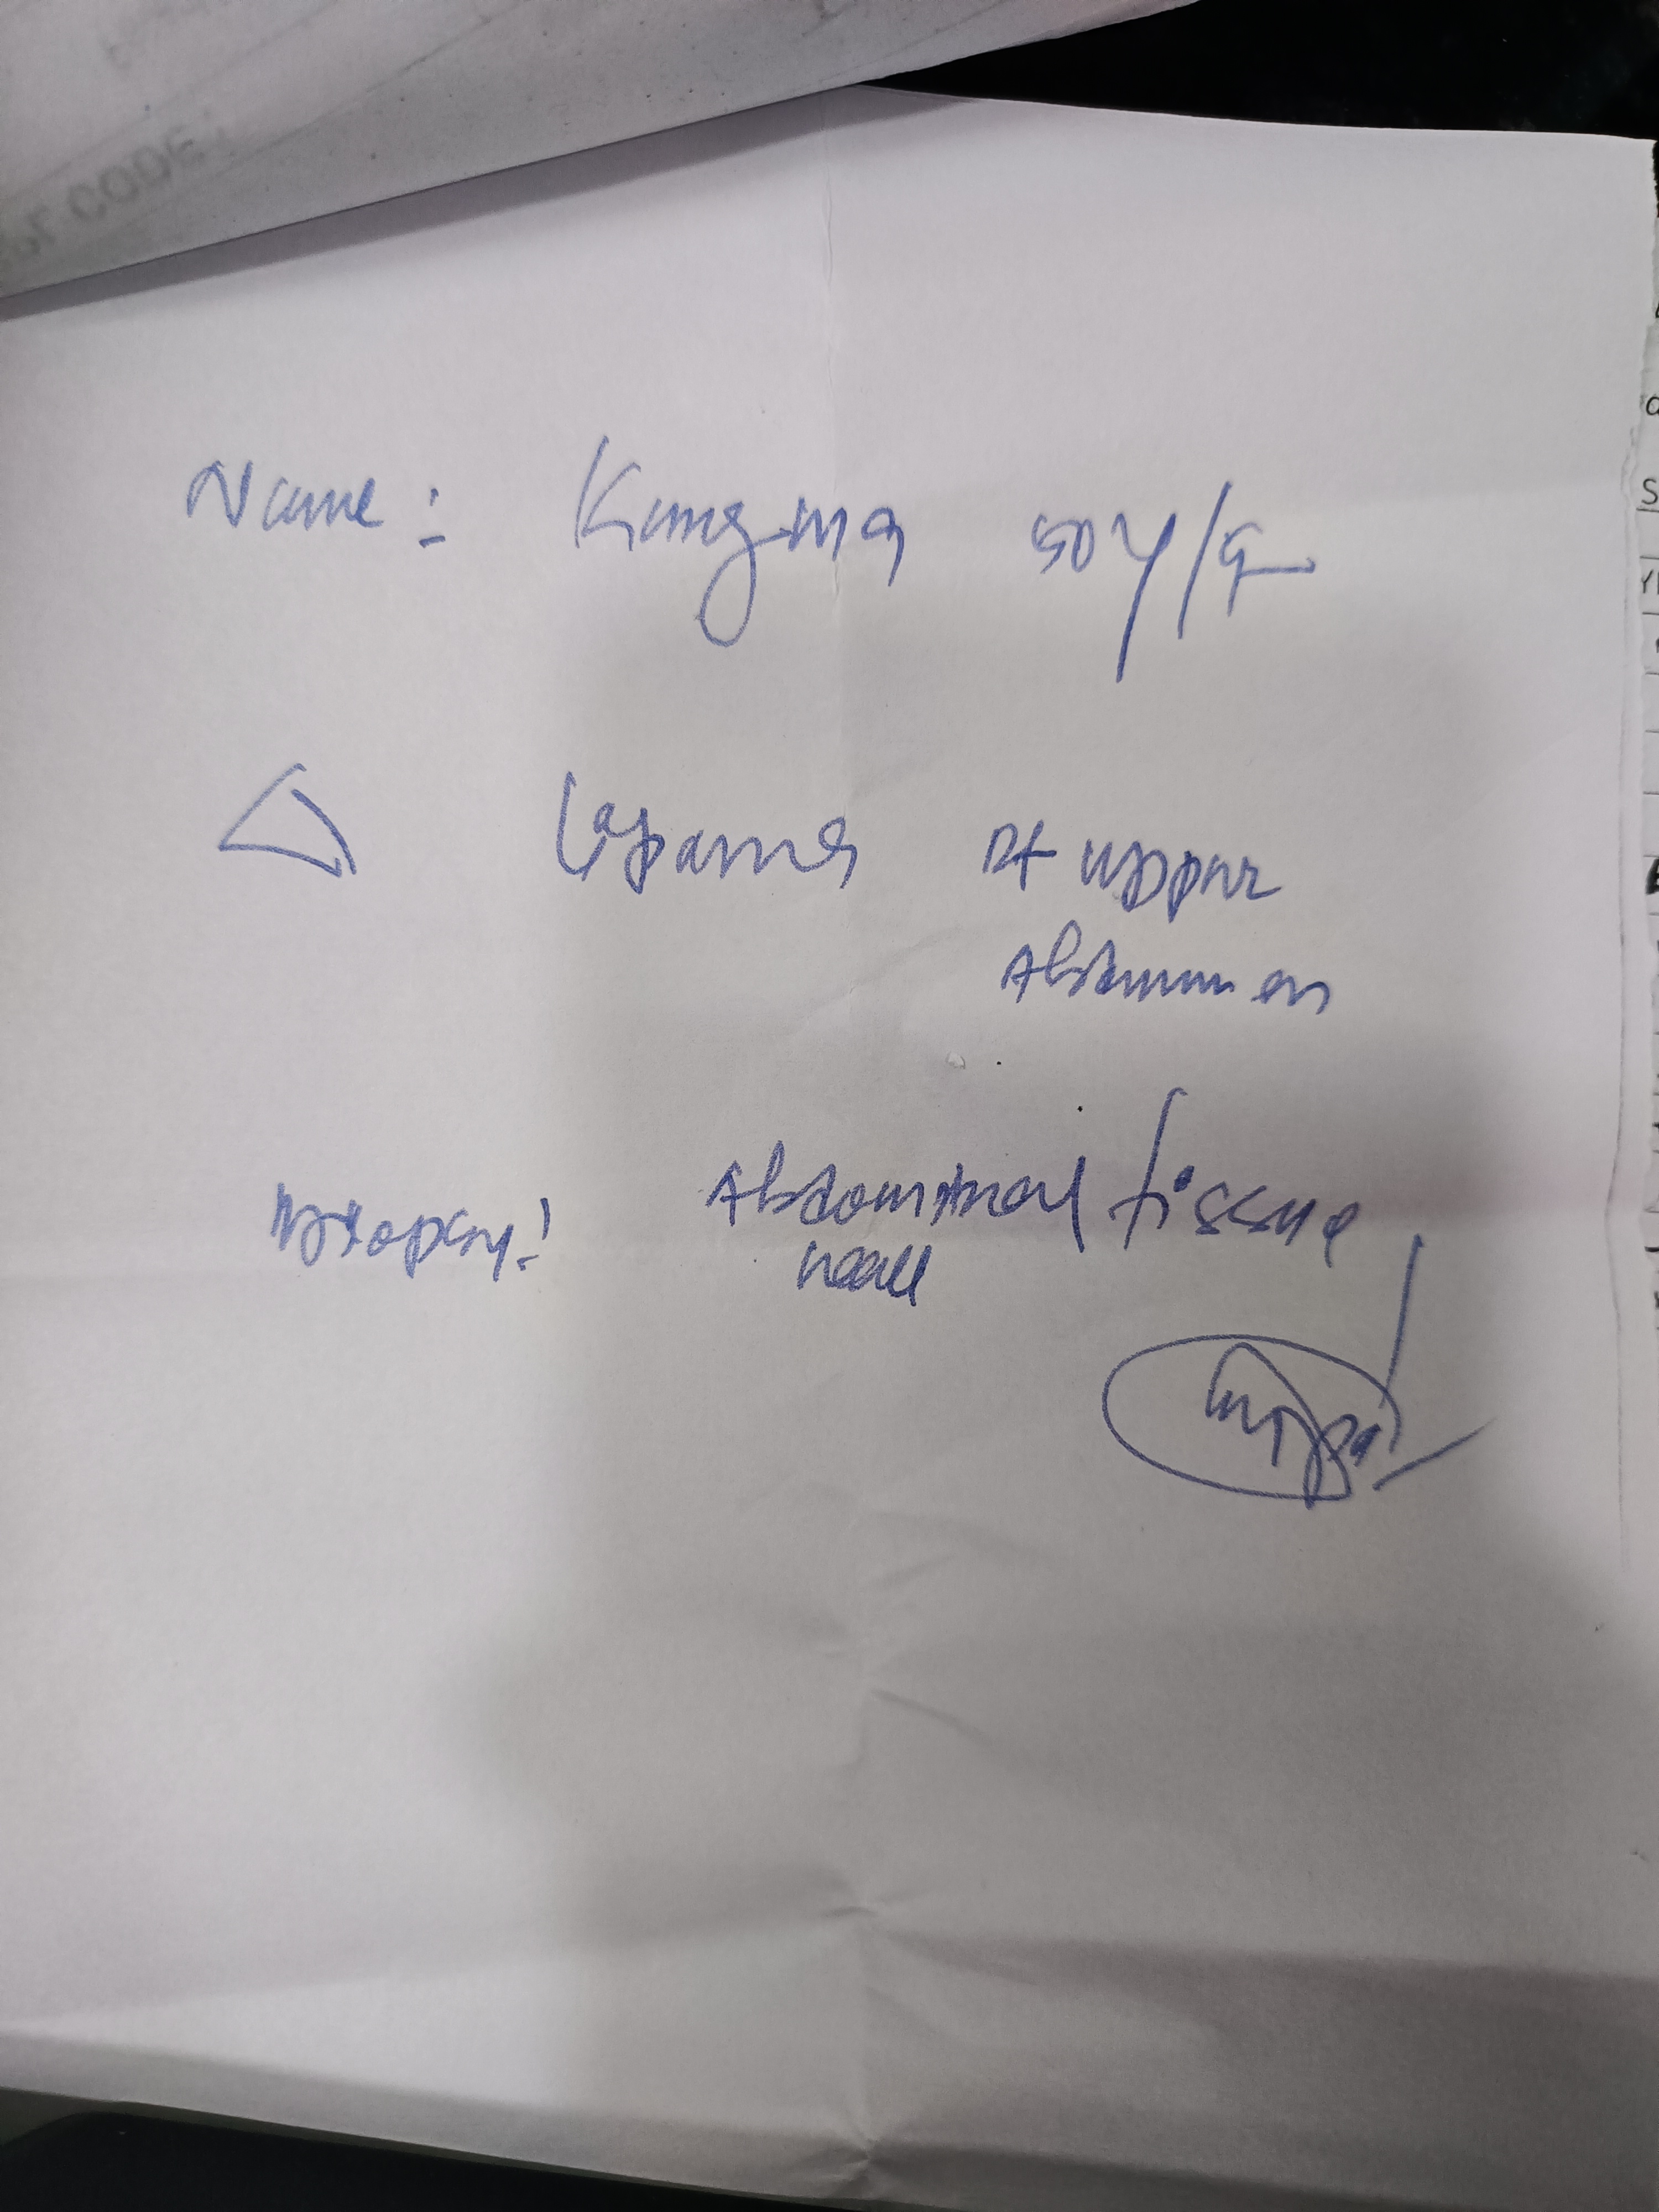 CODE :
Name :
50 Y/F
△ Lipoma Rt upper
Abdomen
Biopsy : Abdominal tissue
wall